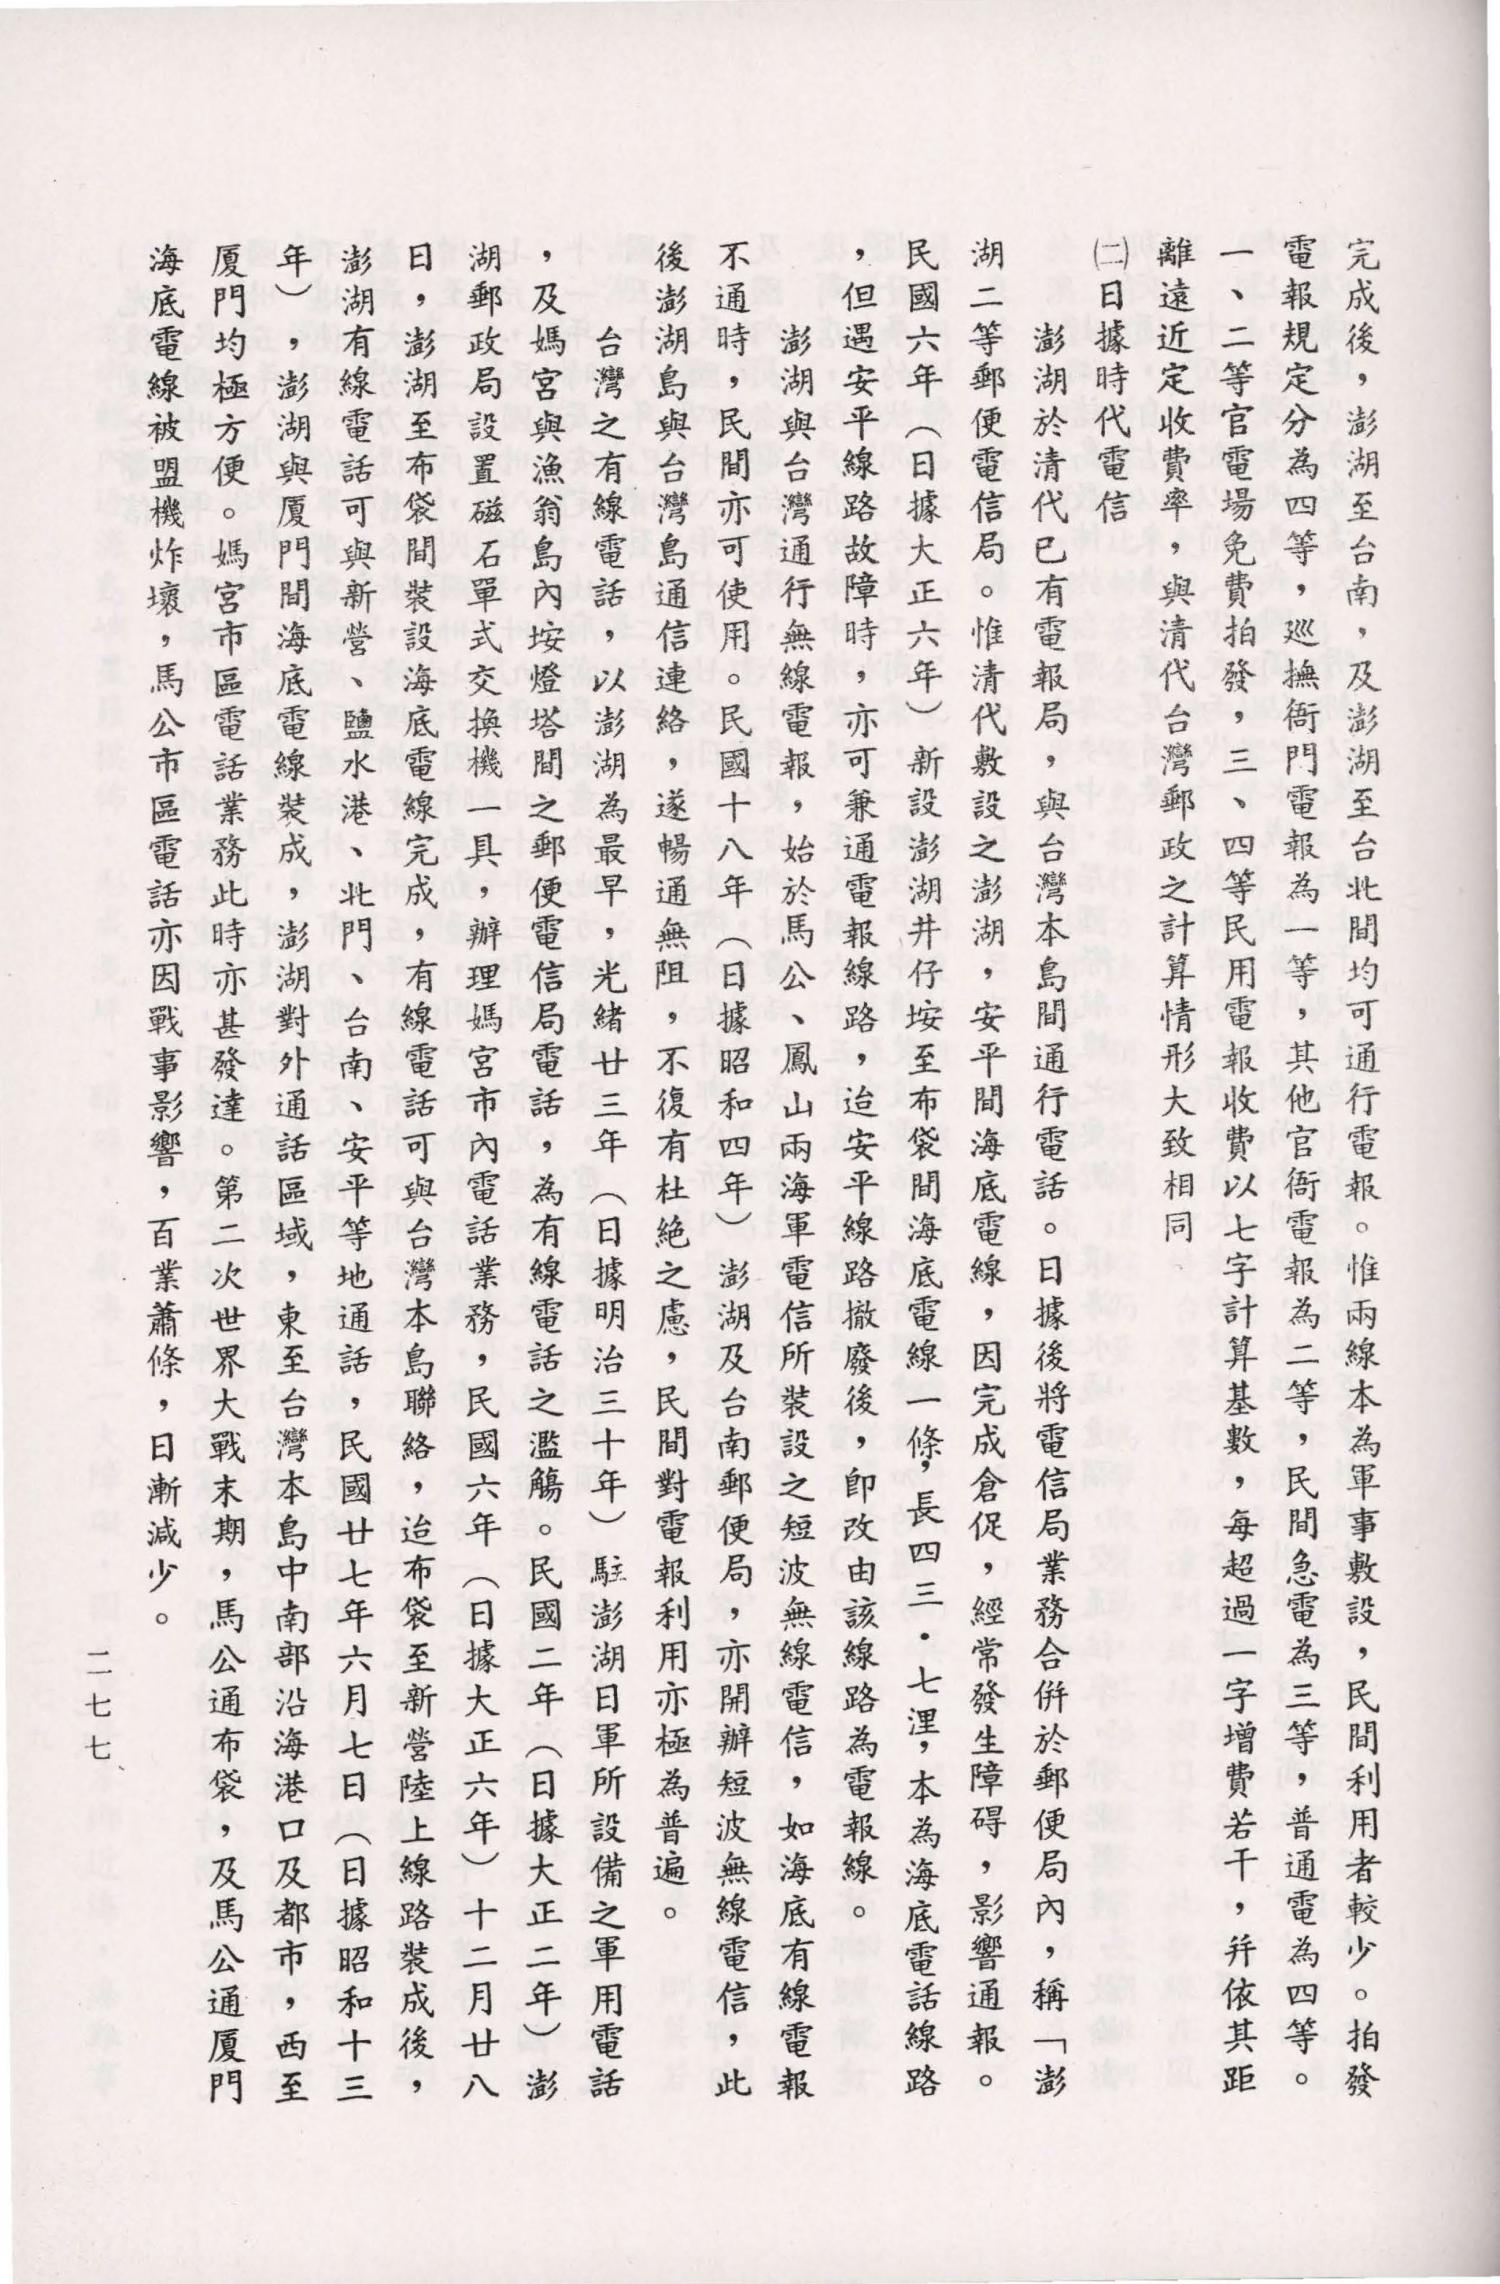 完成後，澎湖至台南，及澎湖至台北間均可通行電報。惟兩線本為軍事敷設，民間利用者較少。拍發
電報規定分為四等，巡撫衙門電報為一等，其他官衙電報為二等，民間急電為三等，普通電為四等。
一、二等官電場免費拍發，三、四等民用電報收費以七字計算基數，每超過一字增費若干，幷依其距
離遠近定收費率，與清代台灣郵政之計算情形大致相同
㈡日據時代電信
澎湖於清代已有電報局，與台灣本島間通行電話。日據後將電信局業務合倂於郵便局內，稱「澎
湖二等郵便電信局。惟清代敷設之澎湖，安平間海底電線，因完成倉促，經常發生障碍，影響通報。
民國六年（日據大正六年）新設澎湖井仔垵至布袋間海底電線一條，長四三．七浬，本為海底電話線路
，但遇安平線路故障時，亦可兼通電報線路，迨安平線路撤廢後，卽改由該線路為電報線。
澎湖與台灣通行無線電報，始於馬公、鳳山兩海軍電信所裝設之短波無線電信，如海底有線電報
不通時，民間亦可使用。民國十八年（日據昭和四年）澎湖及台南郵便局，亦開辦短波無線電信，此
後澎湖島與台灣島通信連絡，遂暢通無阻，不復有杜絕之慮，民間對電報利用亦極為普遍。
台灣之有線電話，以澎湖為最早，光緒廿三年（日據明治三十年）駐澎湖日軍所設備之軍用電話
，及媽宮與漁翁島內垵燈塔間之郵便電信局電話，為有線電話之濫觴。民國二年（日據大正二年）澎
湖郵政局設置磁石單式交換機一具，辦理媽宮市內電話業務，民國六年（日據大正六年）十二月廿八
日，澎湖至布袋間裝設海底電線完成，有線電話可與台灣本島聯絡，迨布袋至新營陸上線路裝成後，
澎湖有線電話可與新營、鹽水港、北門、台南、安平等地通話，民國廿七年六月七日（日據昭和十三
年），澎湖與厦門間海底電線裝成，澎湖對外通話區域，東至台灣本島中南部沿海港口及都市，西至
厦門均極方便。媽宮市區電話業務此時亦甚發達。第二次世界大戰末期，馬公通布袋，及馬公通厦門
海底電線被盟機炸壞，馬公市區電話亦因戰事影響，百業蕭條，日漸減少。
二七七